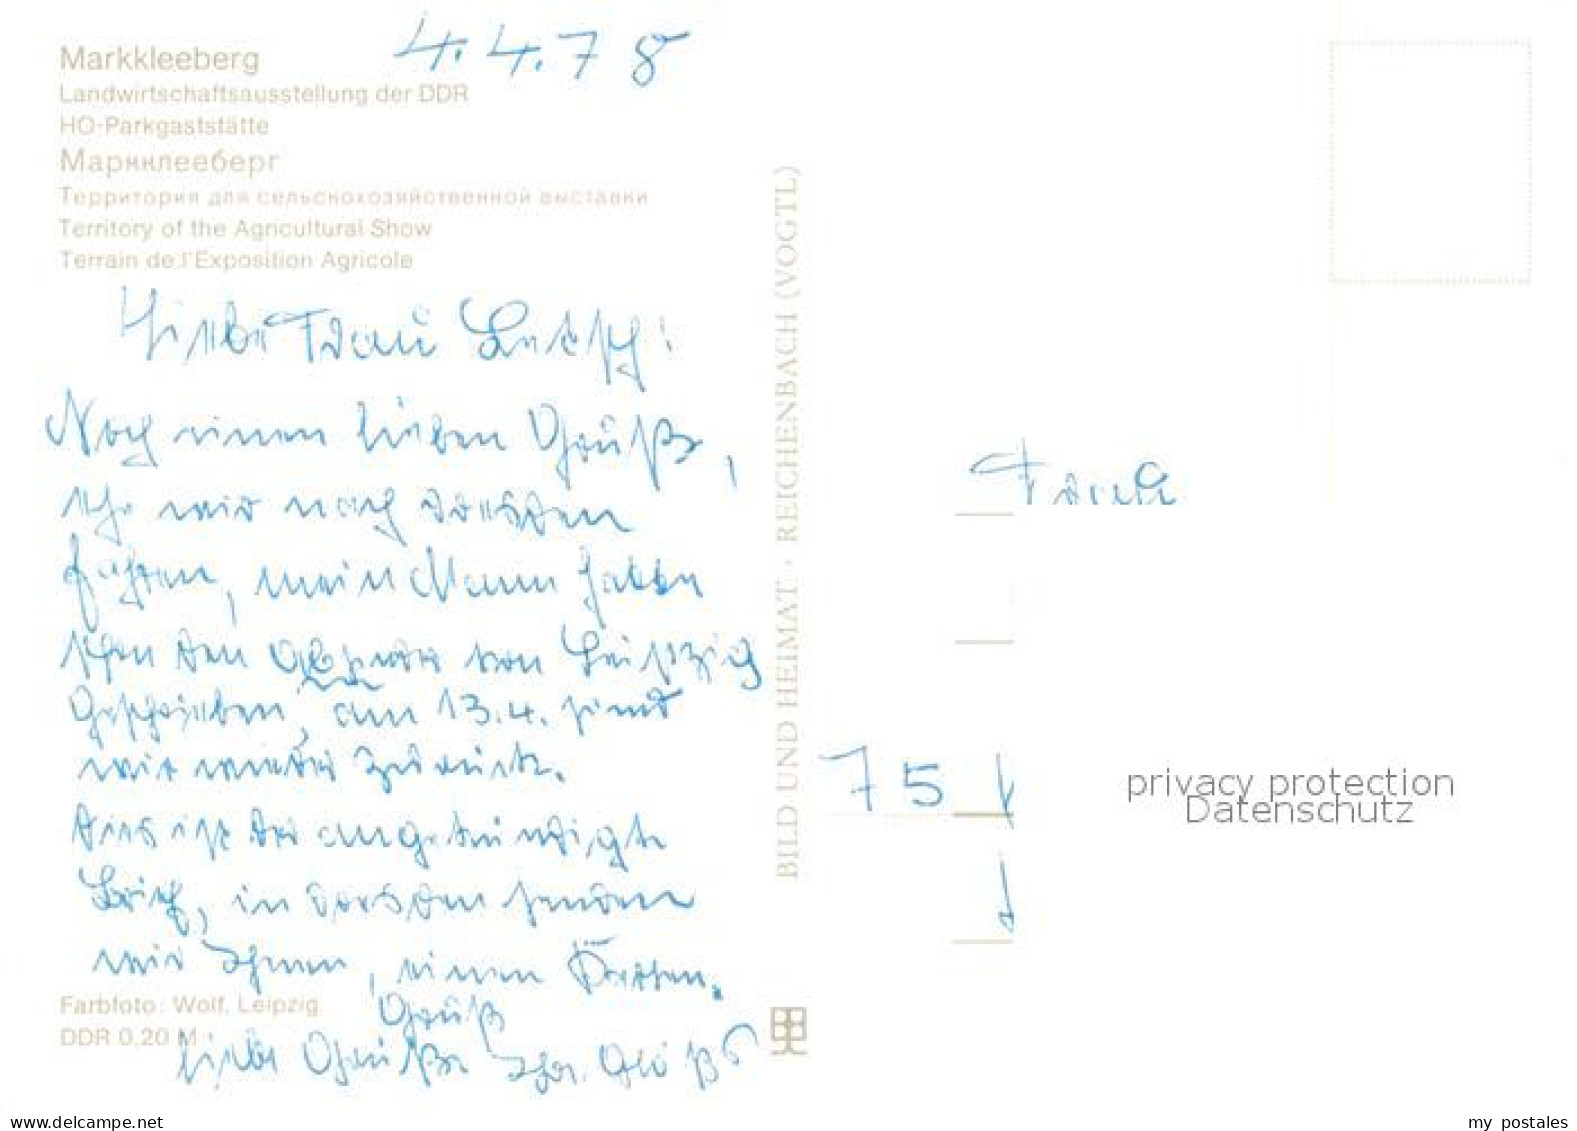 4.4.78
Markkleeberg
Landwirtschaftsausstellung der DDR
HO-Parkgaststätte
Марнклееберг
Территория для сельскохозяйственной выставки
Territory of the Agricultural Show
Terrain de l'Exposition Agricole
Liebe Frau
Noch einen lieben Gruß,
ehe wir nach Dresden
fahren, mein Mann haben
schon den von Leipzig
geschrieben, am 13.4. sind
wir wieder zurück.
Dies ist der angekündigte
in Dresden senden
wir Ihnen, einen Karten.
Gruß
liebe Grüße Ihre
Farbfoto: Wolf, Leipzig
DDR 0,20 M
BILD UND HEIMAT · REICHENBACH (VOGTL)
Frau
75
privacy protection
Datenschutz
www.delcampe.net
my_postales